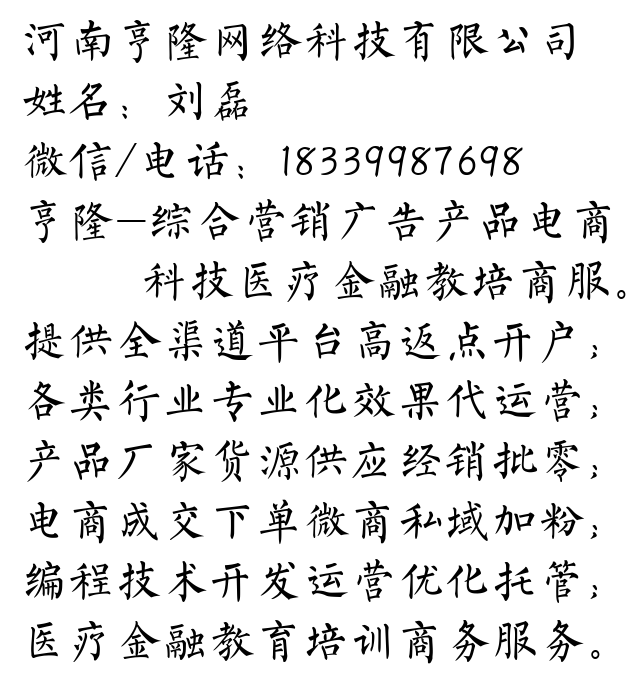 河南亨隆网络科技有限公司
姓名：刘磊
微信/电话：18339987698
亨隆—综合营销广告产品电商
科技医疗金融教培商服。
提供全渠道平台高返点开户；
各类行业专业化效果代运营；
产品厂家货源供应经销批零；
电商成交下单微商私域加粉；
编程技术开发运营优化托管；
医疗金融教育培训商务服务。